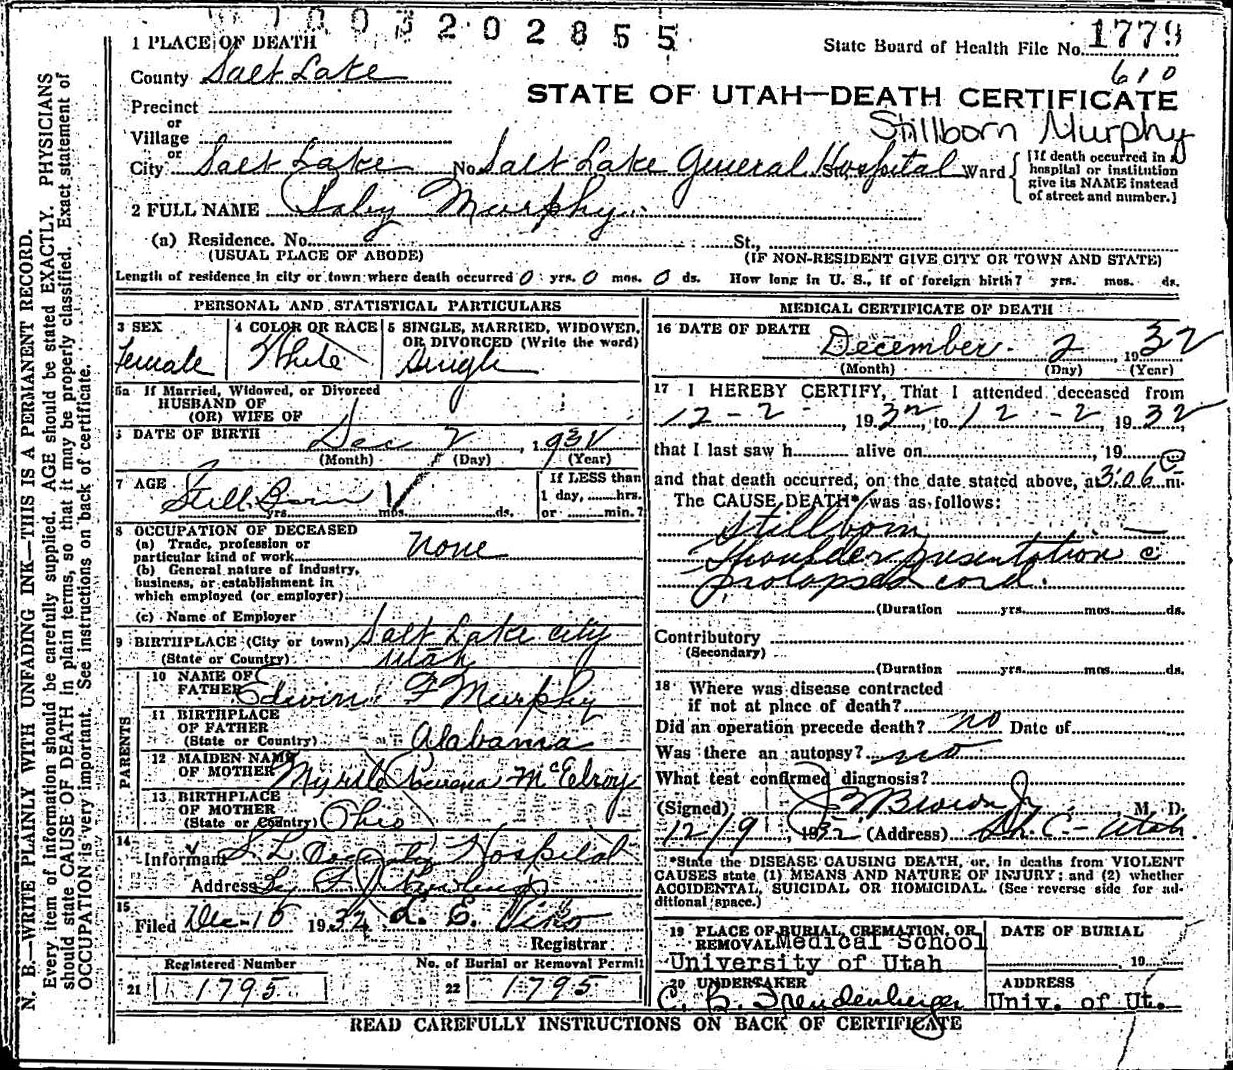 003202855
1 PLACE OF DEATH
State Board of Health File No. 1779
County Salt Lake
610
STATE OF UTAH—DEATH CERTIFICATE
Precinct
or
Village
Stillborn Murphy
or
City Salt Lake No. Salt Lake General Hospital St. Ward
[If death occurred in a hospital or institution give its NAME instead of street and number.]
2 FULL NAME Baby Murphy
(a) Residence. No. St.,
(USUAL PLACE OF ABODE) (IF NON-RESIDENT GIVE CITY OR TOWN AND STATE)
Length of residence in city or town where death occurred 0 yrs. 0 mos. 0 ds. How long in U. S., if of foreign birth? yrs. mos. ds.
PERSONAL AND STATISTICAL PARTICULARS
3 SEX
Female
4 COLOR OR RACE
White
5 SINGLE, MARRIED, WIDOWED,
OR DIVORCED (Write the word)
Single
5a If Married, Widowed, or Divorced
HUSBAND OF
(OR) WIFE OF
DATE OF BIRTH Dec 2, 1932
(Month) (Day) (Year)
7 AGE
Still Born
yrs. mos. ds.
If LESS than
1 day, hrs.
or min.?
8 OCCUPATION OF DECEASED
(a) Trade, profession or
particular kind of work none
(b) General nature of industry,
business, or establishment in
which employed (or employer)
(c) Name of Employer
9 BIRTHPLACE (City or town) Salt Lake City
(State or Country) Utah
PARENTS
10 NAME OF
FATHER Edwin F Murphy
11 BIRTHPLACE
OF FATHER
(State or Country) Alabama
12 MAIDEN NAME
OF MOTHER Myrtle McElroy
13 BIRTHPLACE
OF MOTHER
(State or Country) Ohio
14
Informant S L County Hospital
Address
15
Filed Dec 10 1932 L. E. Viko
Registrar
Registered Number
21 1795
No. of Burial or Removal Permit
22 1795
MEDICAL CERTIFICATE OF DEATH
16 DATE OF DEATH
December 2, 1932
(Month) (Day) (Year)
17 I HEREBY CERTIFY, That I attended deceased from
12-2, 1932, to 12-2, 1932,
that I last saw h alive on, 19
and that death occurred, on the date stated above, at 3:06 m.
The CAUSE DEATH* was as follows:
Stillborn —
Shoulder presentation c
prolapsed cord.
(Duration yrs. mos. ds.
Contributory
(Secondary)
(Duration yrs. mos. ds.
18 Where was disease contracted
if not at place of death?
Did an operation precede death? no Date of
Was there an autopsy? no
What test confirmed diagnosis?
(Signed) Brown Jr M. D.
12/9, 1932 (Address) S.L.C. Utah
*State the DISEASE CAUSING DEATH, or, in deaths from VIOLENT
CAUSES state (1) MEANS AND NATURE OF INJURY; and (2) whether
ACCIDENTAL, SUICIDAL OR HOMICIDAL. (See reverse side for ad-
ditional space.)
19 PLACE OF BURIAL, CREMATION, OR
REMOVAL Medical School
University of Utah
DATE OF BURIAL
19
20 UNDERTAKER
ADDRESS
Univ. of Ut.
READ CAREFULLY INSTRUCTIONS ON BACK OF CERTIFICATE
N. B.—WRITE PLAINLY WITH UNFADING INK—THIS IS A PERMANENT RECORD.
Every item of information should be carefully supplied. AGE should be stated EXACTLY. PHYSICIANS
should state CAUSE OF DEATH in plain terms, so that it may be properly classified. Exact statement of
OCCUPATION is very important. See instructions on back of certificate.